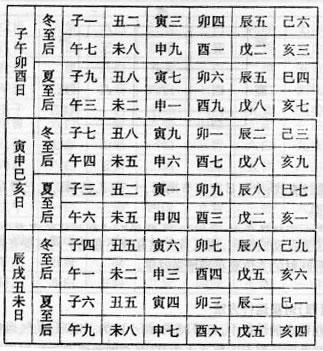 子午卯酉日
冬至后
子一 丑二 寅三 卯四 辰五 己六
午七 未八 申九 酉一 戊二 亥三
夏至后
子九 丑八 寅七 卯六 辰五 巳四
午三 未二 申一 酉九 戊八 亥七
寅申巳亥日
冬至后
子七 丑八 寅九 卯一 辰二 己三
午四 未五 申六 酉七 戊八 亥九
夏至后
子三 丑二 寅一 卯九 辰八 巳七
午六 未五 申四 酉三 戊二 亥一
辰戌丑未日
冬至后
子四 丑五 寅六 卯七 辰八 己九
午一 未二 申三 酉四 戊五 亥六
夏至后
子六 丑五 寅四 卯三 辰二 巳一
午九 未八 申七 酉六 戊五 亥四